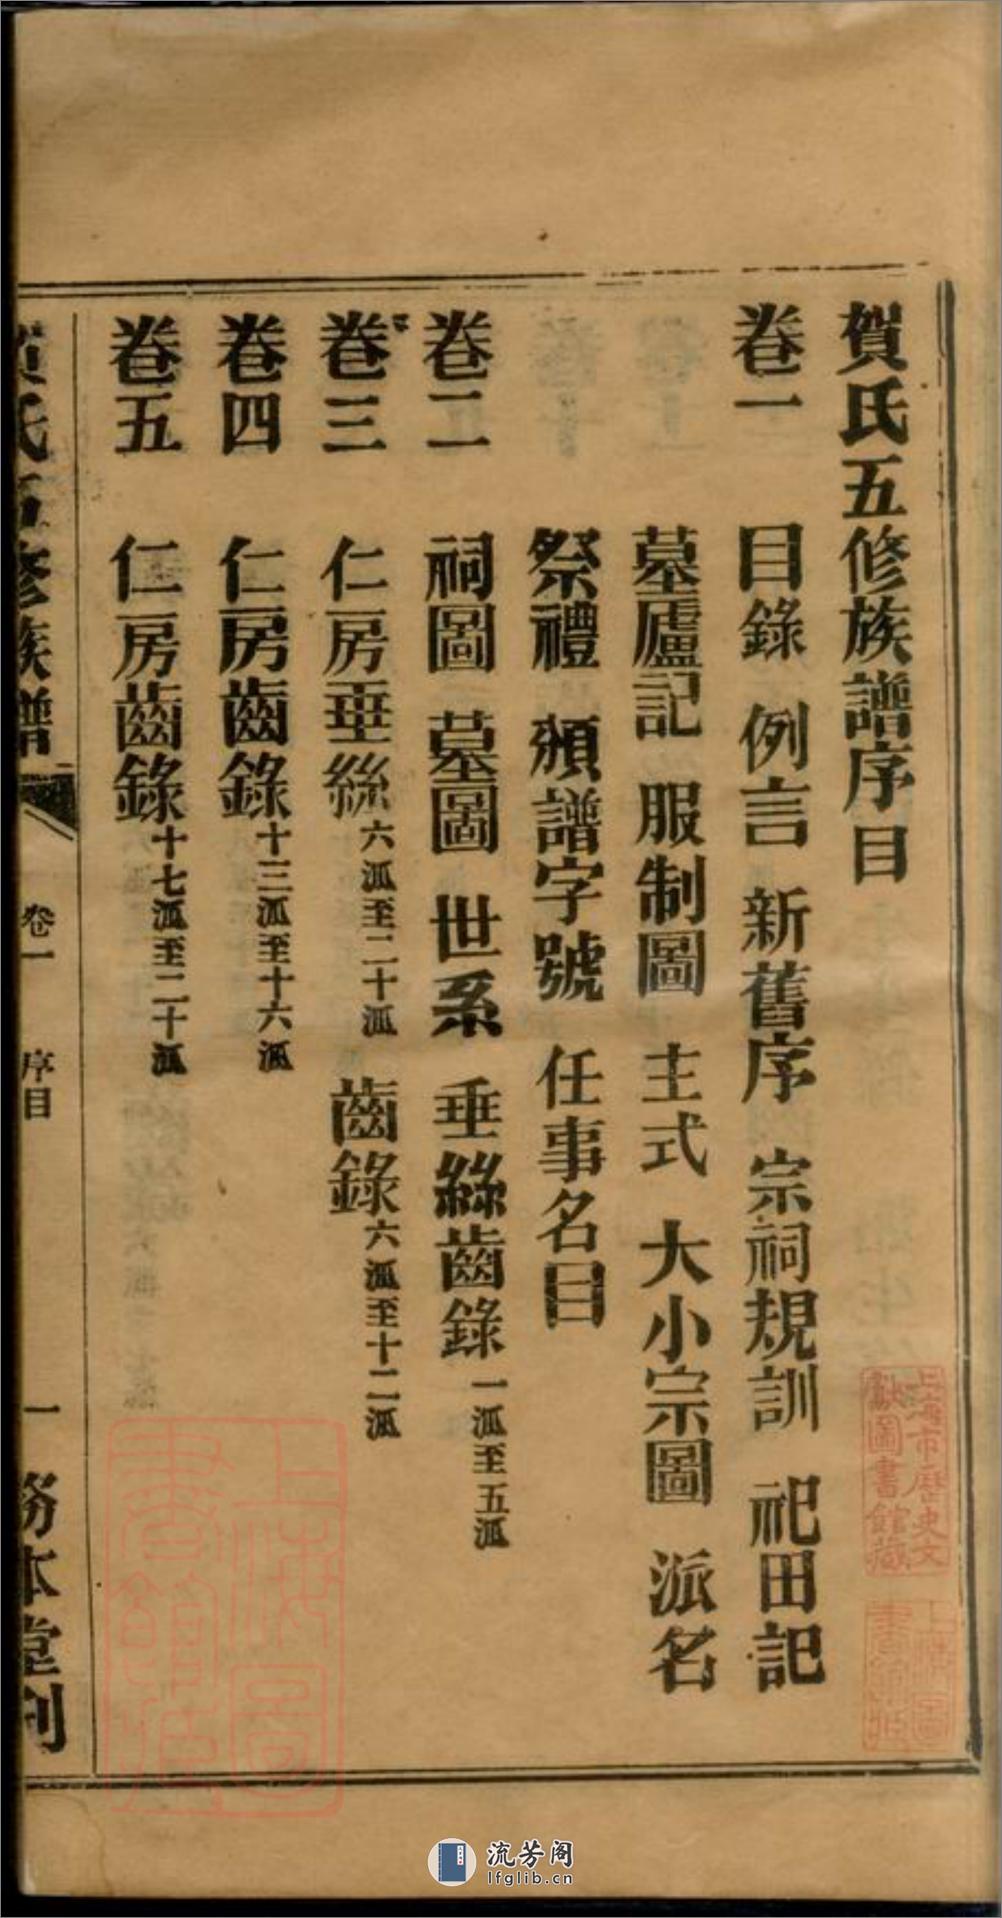 賀氏五修族譜序目
卷一 目錄 例言 新舊序 宗祠規訓 祀田記
墓廬記 服制圖 主式 大小宗圖 派名
祭禮 頒譜字號 任事名目
卷二 祠圖 墓圖 世系 垂絲齒錄 一派至五派
卷三 仁房垂絲 六派至二十派 齒錄 六派至十二派
卷四 仁房齒錄 十三派至十六派
卷五 仁房齒錄 十七派至二十派
賀氏五修族譜 卷一 序目 一 務本堂刊
上海市歷史文獻圖書館藏
上海圖書館藏
上海圖書館藏
流芳阁
lfglib.cn